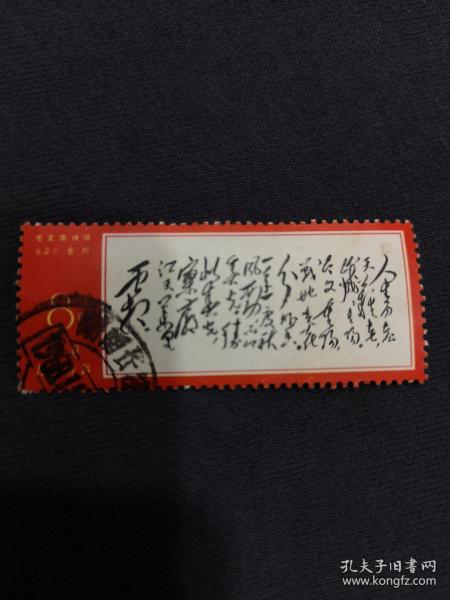 毛主席诗词
采桑子 重阳
8
人生易老
天难老
岁岁重阳
今又重阳
战地黄花
分外香
一年一度秋
风劲不似
春光胜
似春光
寥廓
江天万里
霜
孔夫子旧书网
www.kongfz.com